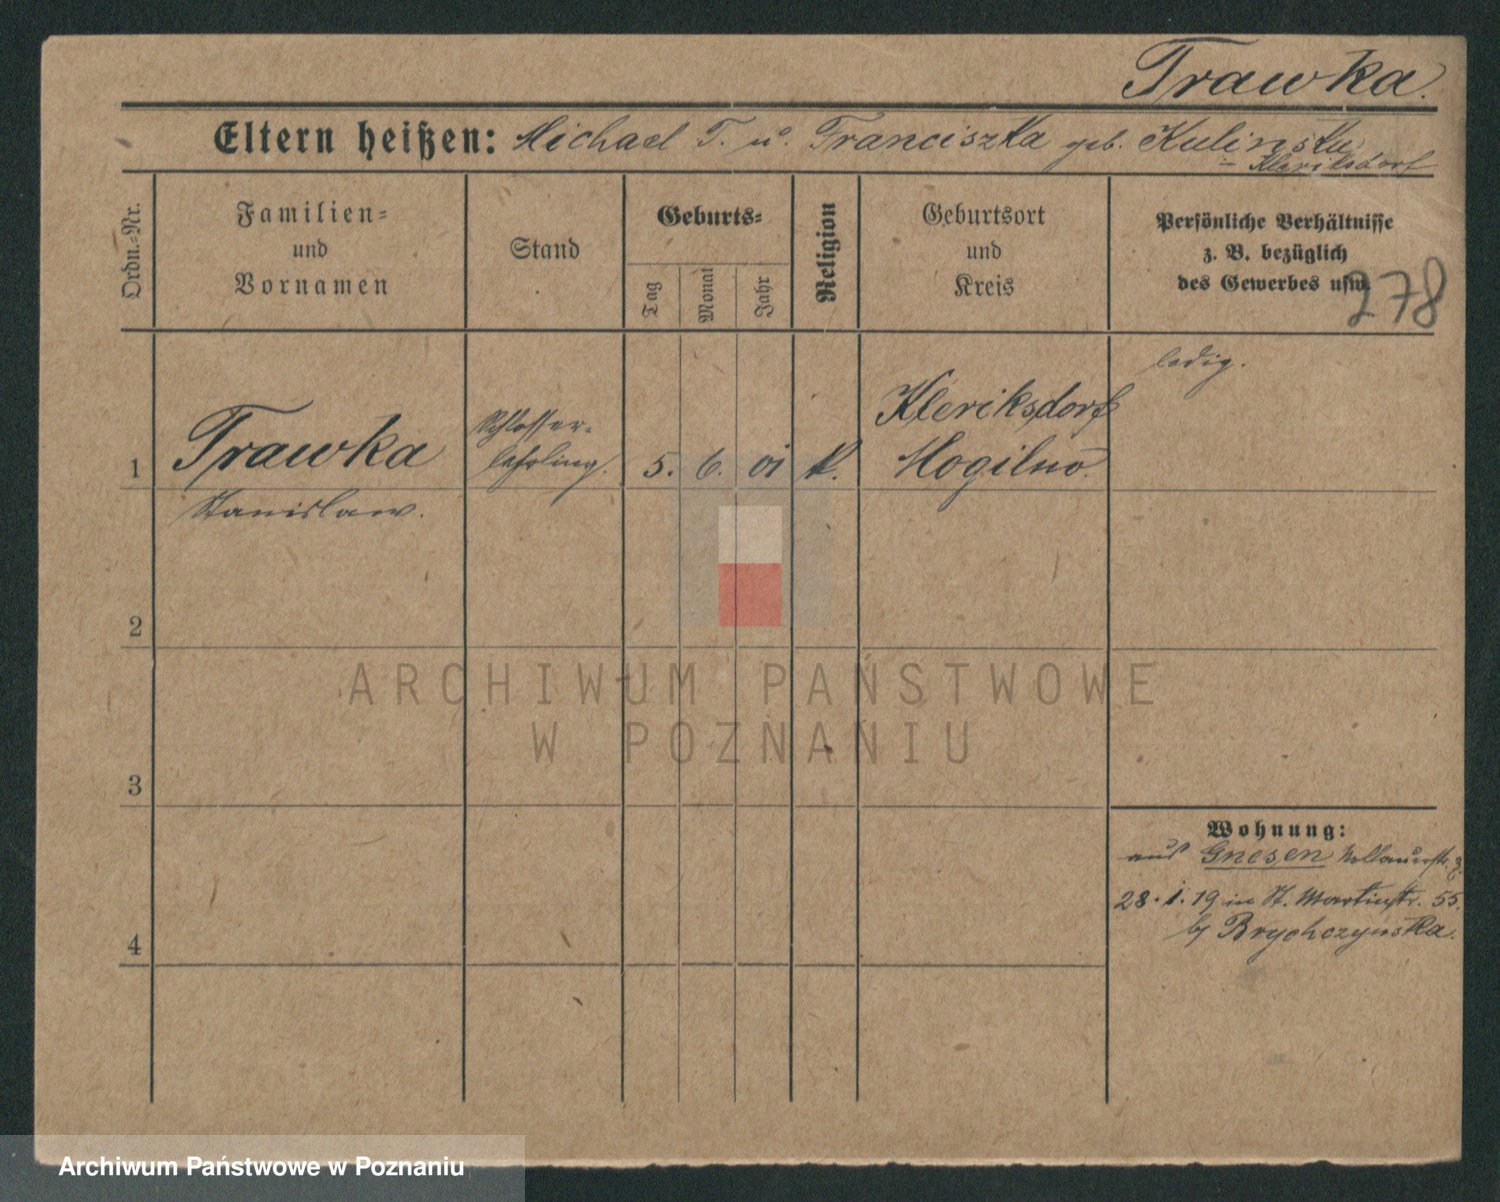 Trawka.
Eltern heißen: Michael T. u. Franciszka geb. Kulinska
- Kleriksdorf
Ordn.-Nr.
Familien-
und
Vornamen
Stand
Geburts-
Tag
Monat
Jahr
Religion
Geburtsort
und
Kreis
Persönliche Verhältnisse
z. B. bezüglich
des Gewerbes usw.
278
1
Trawka
Stanislaw.
Schlosser-
lehrling.
5. 6. 01
k.
Kleriksdorf
Mogilno.
ledig.
2
3
4
Wohnung:
aus Gnesen
28.1.19 in St. Martinstr. 55.
b/ Brychczynska.
ARCHIWUM PAŃSTWOWE
W POZNANIU
Archiwum Państwowe w Poznaniu